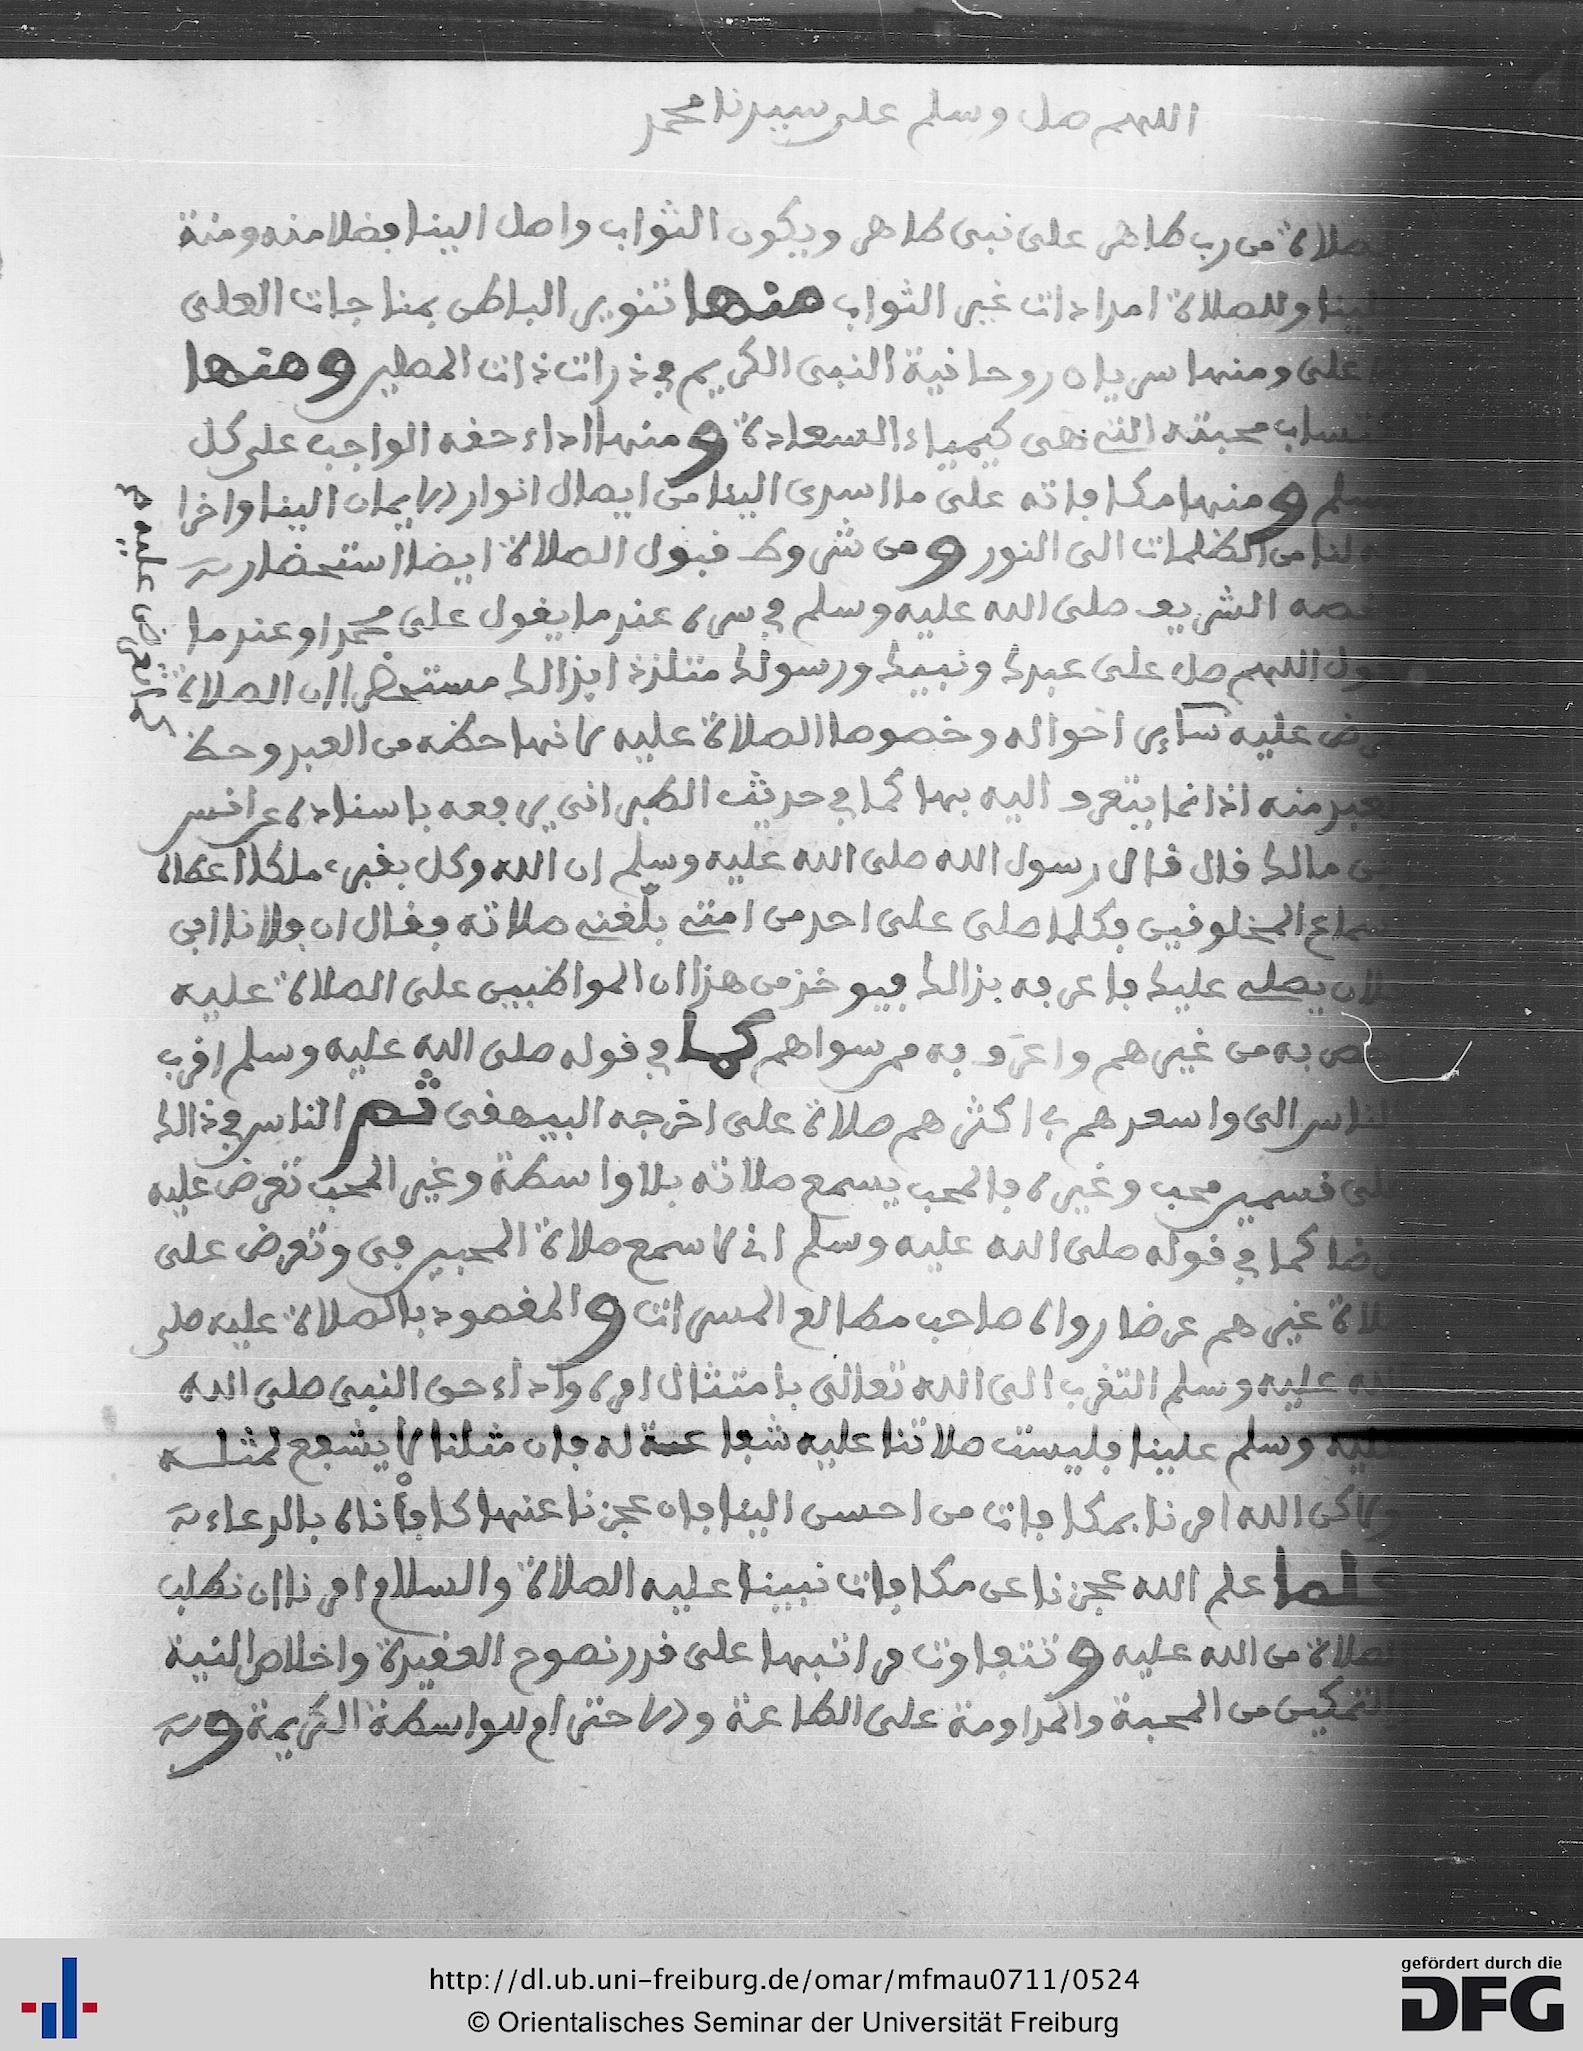 اللهم صل وسلم على سيدنا محمد
الصلاة من رب طاهر على نبى طاهر ويكون الثواب واصل الينا فضلا منه ومنة
علينا وللصلاة امدادات غير الثواب منها تنوير الباطن بمناجات العلى
الاعلى ومنها سريان روحانية النبى الكريم في ذرات ذات المصلي ومنها
اكتساب محبته التى هى كيمياء السعادة ومنها اداء حقه الواجب على كل
مسلم ومنها مكافاته على ما اسدى الينا من ايصال انوار الايمان الينا واخرا
جه لنا من الظلمات الى النور ومن شروط قبول الصلاة ايضا استحضار
شخصه الشريف صلى الله عليه وسلم في سره عند ما يقول على محمد او عند ما
يقول اللهم صل على عبدك ونبيك ورسولك متلذذا بذالك مستحضرا ان الصلاة
تعرض عليه كسائر احواله وخصوصا الصلاة عليه لانها حظه من العبد وحظ
العبد منه اذ انما يتعرف اليه بها كما في حديث الطبرانى يرفعه باسناده عن انس
بن مالك قال قال رسول الله صلى الله عليه وسلم ان الله وكل بقبرى ملكا اعطاه
اسماع المخلوقين فكلما صلى على احد من امتى بلغنى صلاته فقال ان فلانا ابن
فلان يصلى عليك فاعرفه بذالك فيوخذ من هذا ان المواظبين على الصلاة عليه
اخص به من غيرهم واعرف به ممن سواهم كما في قوله صلى الله عليه وسلم اقرب
الناس الى واسعدهم بي اكثرهم صلاة على اخرجه البيهقى ثم الناس في ذالك
على قسمين محب وغيره فالمحب يسمع صلاته بلا واسطة وغير المحب تعرض عليه
عرضا كما في قوله صلى الله عليه وسلم انى لاسمع صلاة المحبين في وتعرض على
صلاة غيرهم عرضا رواه صاحب مطالع المسرات والمقصود بالصلاة عليه صلى
الله عليه وسلم التقرب الى الله تعالى بامتثال امره واداء حق النبى صلى الله
عليه وسلم علينا فليست صلاتنا عليه شفاعة له فان مثلنا لا يشفع لمثله
ولاكن الله امرنا بمكافات من احسن الينا فان عجزنا عنها كافأناه بالدعاء
فلما علم الله عجزنا عن مكافات نبينا عليه الصلاة والسلام امرنا ان نطلب
الصلاة من الله عليه وتتفاوت مراتبها على قدر نصوح العقيدة واخلاص النية
والتمكين من المحبة والمداومة على الطاعة والاحترام للواسطة الكريمة و
كذا تعرض عليه
http://dl.ub.uni-freiburg.de/omar/mfmau0711/0524
© Orientalisches Seminar der Universität Freiburg
gefördert durch die
DFG